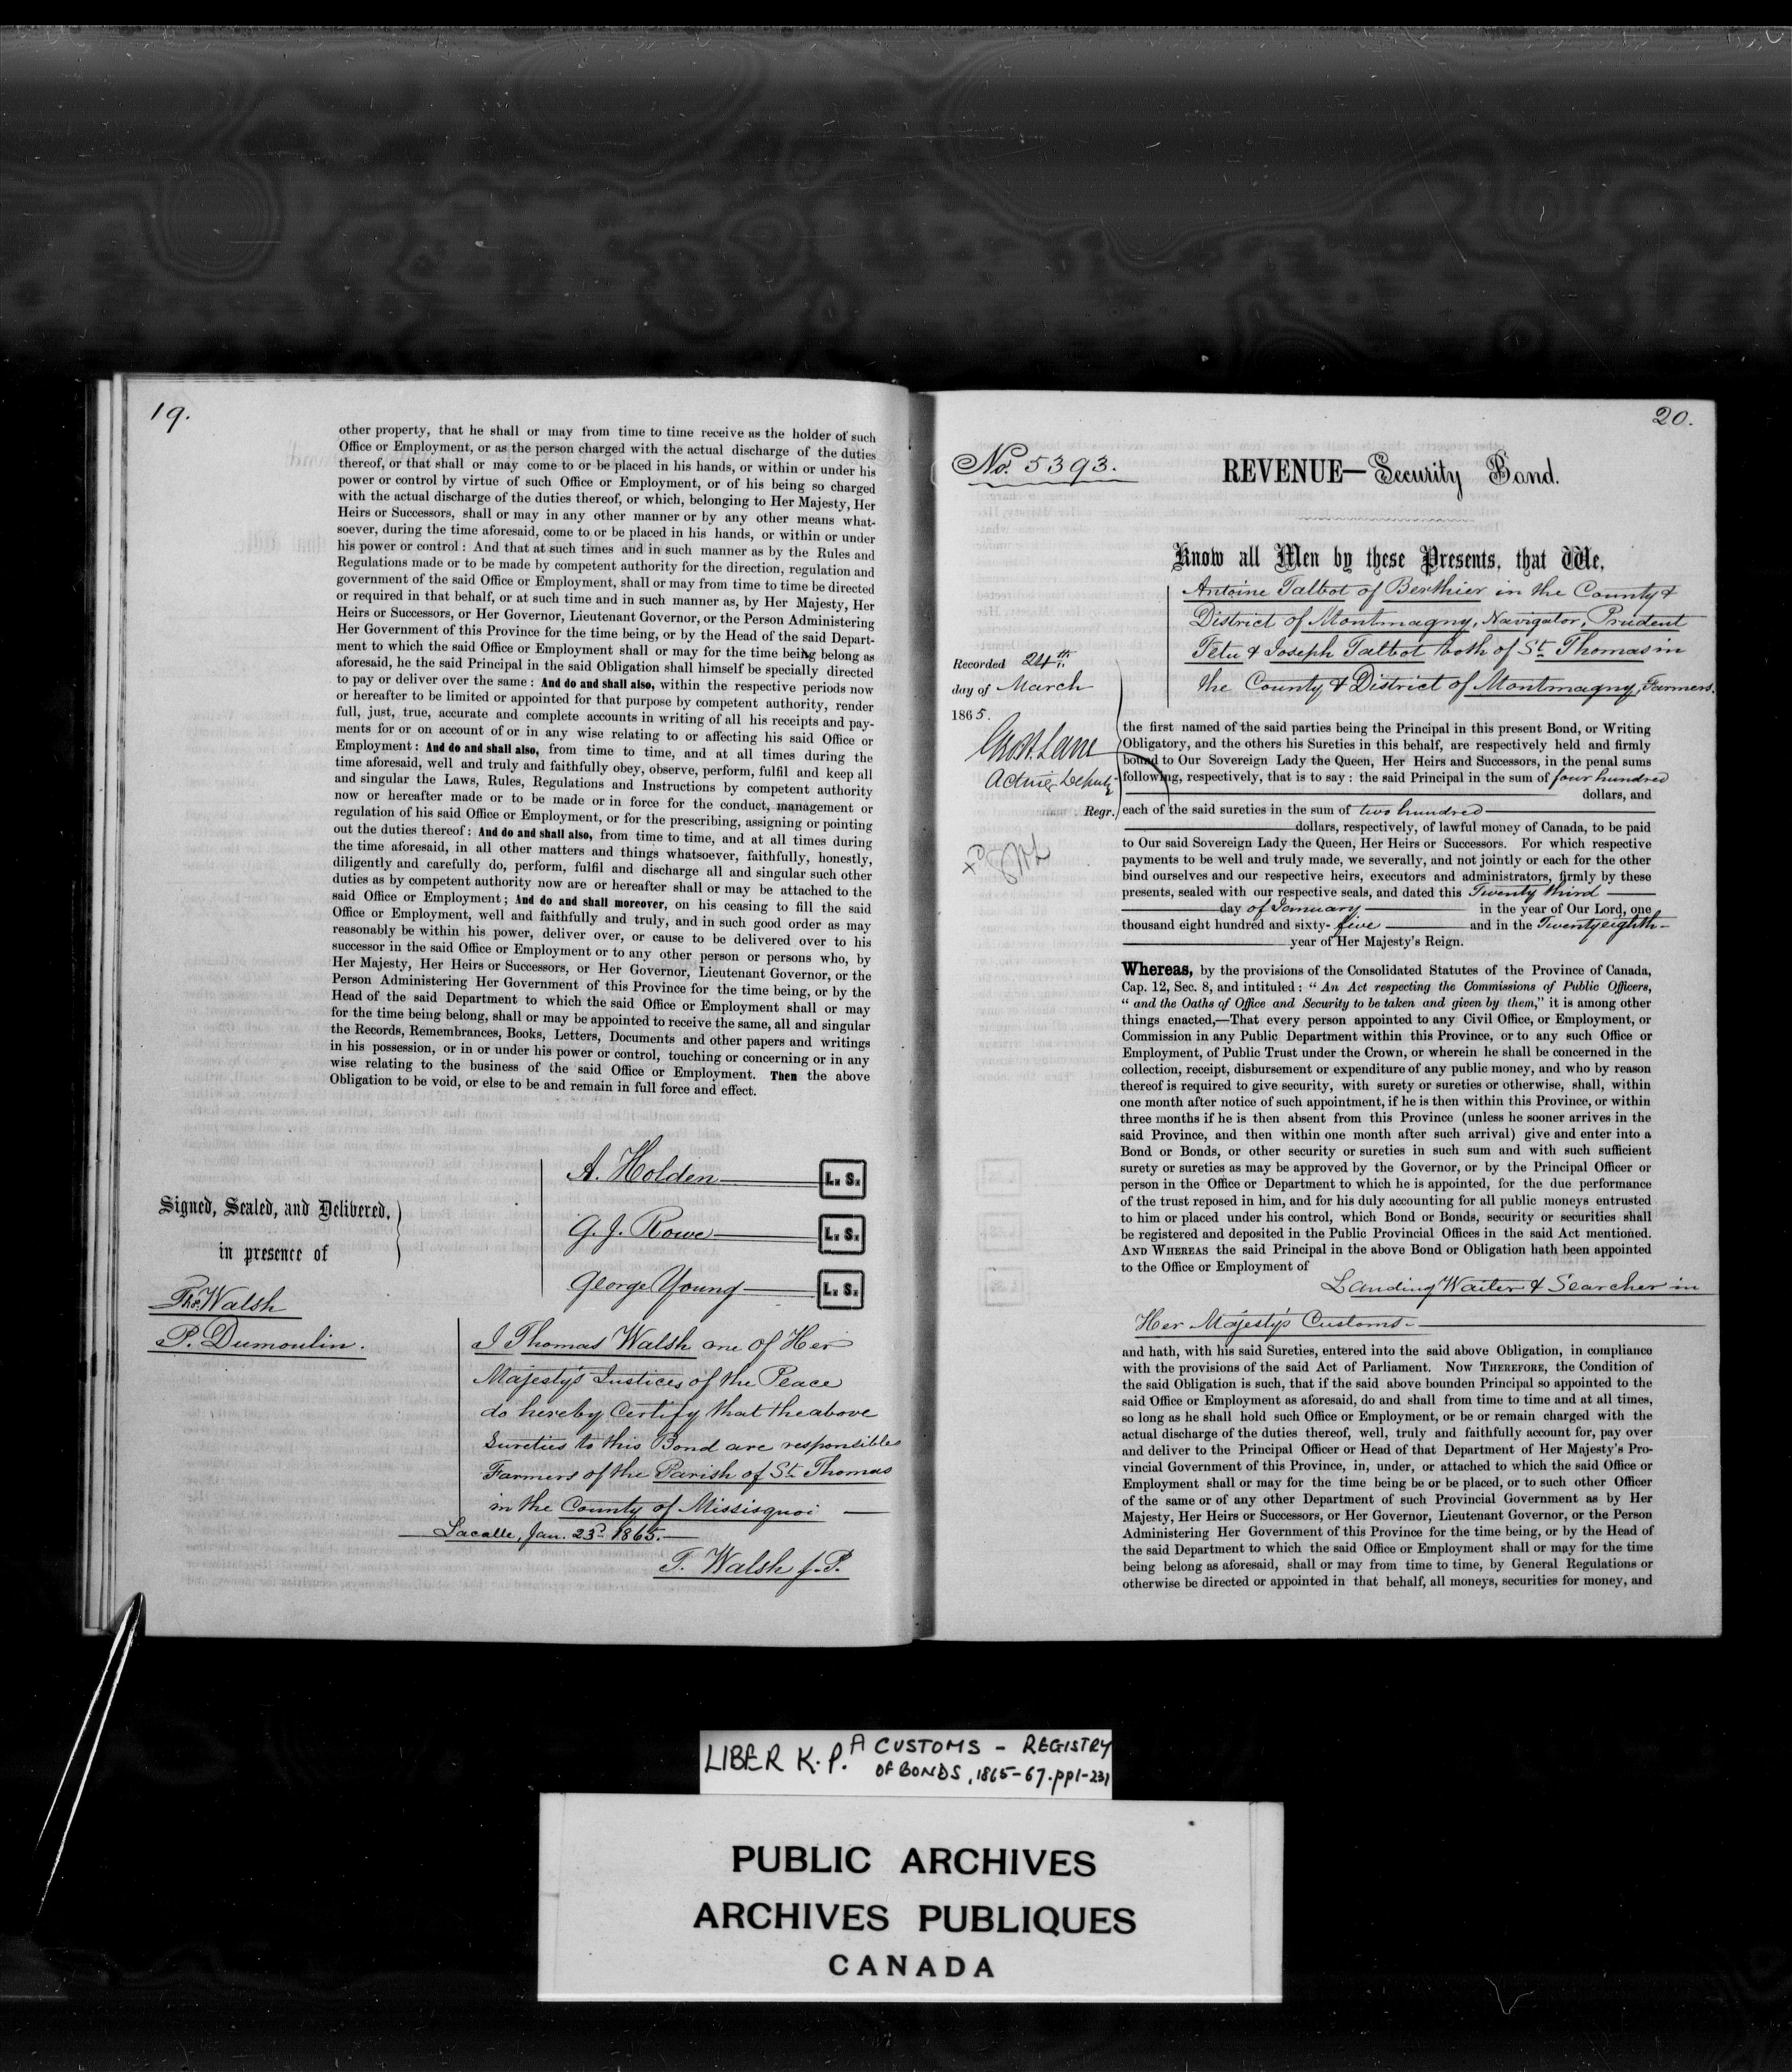 19.
other property, that he shall or may from time to time receive as the holder of such
Office or Employment, or as the person charged with the actual discharge of the duties
thereof, or that shall or may come to or be placed in his hands, or within or under his
power or control by virtue of such Office or Employment, or of his being so charged
with the actual discharge of the duties thereof, or which, belonging to Her Majesty, Her
Heirs or Successors, shall or may in any other manner or by any other means what-
soever, during the time aforesaid, come to or be placed in his hands, or within or under
his power or control : And that at such times and in such manner as by the Rules and
Regulations made or to be made by competent authority for the direction, regulation and
government of the said Office or Employment, shall or may from time to time be directed
or required in that behalf, or at such time and in such manner as, by Her Majesty, Her
Heirs or Successors, or Her Governor, Lieutenant Governor, or the Person Administering
Her Government of this Province for the time being, or by the Head of the said Depart-
ment to which the said Office or Employment shall or may for the time being belong as
aforesaid, he the said Principal in the said Obligation shall himself be specially directed
to pay or deliver over the same : And do and shall also, within the respective periods now
or hereafter to be limited or appointed for that purpose by competent authority, render
full, just, true, accurate and complete accounts in writing of all his receipts and pay-
ments for or on account of or in any wise relating to or affecting his said Office or
Employment : And do and shall also, from time to time, and at all times during the
time aforesaid, well and truly and faithfully obey, observe, perform, fulfil and keep all
and singular the Laws, Rules, Regulations and Instructions by competent authority
now or hereafter made or to be made or in force for the conduct, management or
regulation of his said Office or Employment, or for the prescribing, assigning or pointing
out the duties thereof : And do and shall also, from time to time, and at all times during
the time aforesaid, in all other matters and things whatsoever, faithfully, honestly,
diligently and carefully do, perform, fulfil and discharge all and singular such other
duties as by competent authority now are or hereafter shall or may be attached to the
said Office or Employment ; And do and shall moreover, on his ceasing to fill the said
Office or Employment, well and faithfully and truly, and in such good order as may
reasonably be within his power, deliver over, or cause to be delivered over to his
successor in the said Office or Employment or to any other person or persons who, by
Her Majesty, Her Heirs or Successors, or Her Governor, Lieutenant Governor, or the
Person Administering Her Government of this Province for the time being, or by the
Head of the said Department to which the said Office or Employment shall or may
for the time being belong, shall or may be appointed to receive the same, all and singular
the Records, Remembrances, Books, Letters, Documents and other papers and writings
in his possession, or in or under his power or control, touching or concerning or in any
wise relating to the business of the said Office or Employment. Then the above
Obligation to be void, or else to be and remain in full force and effect.
A. Holden L. S.
Signed, Sealed, and Delivered,
G. J. Rowe L. S.
in presence of
George Young L. S.
Thos. Walsh
P. Dumoulin.
I Thomas Walsh one of Her
Majesty's Justices of the Peace
do hereby Certify that the above
Sureties to this Bond are responsible
Farmers of the Parish of St. Thomas
in the County of Missisquoi
Lacolle, Jan. 23d 1865.
T. Walsh J.P.
20.
No. 5393.
REVENUE—Security Bond.
Know all Men by these Presents, that We,
Antoine Talbot of Berthier in the County &
District of Montmagny, Navigator, Prudent
Tetu & Joseph Talbot both of St. Thomas in
the County & District of Montmagny, Farmers.
Recorded 24th
day of March
1865.
Lane
Acting Deputy
Regr.
the first named of the said parties being the Principal in this present Bond, or Writing
Obligatory, and the others his Sureties in this behalf, are respectively held and firmly
bound to Our Sovereign Lady the Queen, Her Heirs and Successors, in the penal sums
following, respectively, that is to say : the said Principal in the sum of four hundred
dollars, and
each of the said sureties in the sum of two hundred
dollars, respectively, of lawful money of Canada, to be paid
to Our said Sovereign Lady the Queen, Her Heirs or Successors. For which respective
payments to be well and truly made, we severally, and not jointly or each for the other
bind ourselves and our respective heirs, executors and administrators, firmly by these
presents, sealed with our respective seals, and dated this Twenty third
day of January in the year of Our Lord, one
thousand eight hundred and sixty-five and in the Twenty eighth
year of Her Majesty's Reign.
Whereas, by the provisions of the Consolidated Statutes of the Province of Canada,
Cap. 12, Sec. 8, and intituled : “ An Act respecting the Commissions of Public Officers,
“ and the Oaths of Office and Security to be taken and given by them,” it is among other
things enacted,—That every person appointed to any Civil Office, or Employment, or
Commission in any Public Department within this Province, or to any such Office or
Employment, of Public Trust under the Crown, or wherein he shall be concerned in the
collection, receipt, disbursement or expenditure of any public money, and who by reason
thereof is required to give security, with surety or sureties or otherwise, shall, within
one month after notice of such appointment, if he is then within this Province, or within
three months if he is then absent from this Province (unless he sooner arrives in the
said Province, and then within one month after such arrival) give and enter into a
Bond or Bonds, or other security or sureties in such sum and with such sufficient
surety or sureties as may be approved by the Governor, or by the Principal Officer or
person in the Office or Department to which he is appointed, for the due performance
of the trust reposed in him, and for his duly accounting for all public moneys entrusted
to him or placed under his control, which Bond or Bonds, security or securities shall
be registered and deposited in the Public Provincial Offices in the said Act mentioned.
AND WHEREAS the said Principal in the above Bond or Obligation hath been appointed
to the Office or Employment of
Landing Waiter & Searcher in
Her Majesty's Customs
and hath, with his said Sureties, entered into the said above Obligation, in compliance
with the provisions of the said Act of Parliament. NOW THEREFORE, the Condition of
the said Obligation is such, that if the said above bounden Principal so appointed to the
said Office or Employment as aforesaid, do and shall from time to time and at all times,
so long as he shall hold such Office or Employment, or be or remain charged with the
actual discharge of the duties thereof, well, truly and faithfully account for, pay over
and deliver to the Principal Officer or Head of that Department of Her Majesty's Pro-
vincial Government of this Province, in, under, or attached to which the said Office or
Employment shall or may for the time being be or be placed, or to such other Officer
of the same or of any other Department of such Provincial Government as by Her
Majesty, Her Heirs or Successors, or Her Governor, Lieutenant Governor, or the Person
Administering Her Government of this Province for the time being, or by the Head of
the said Department to which the said Office or Employment shall or may for the time
being belong as aforesaid, shall or may from time to time, by General Regulations or
otherwise be directed or appointed in that behalf, all moneys, securities for money, and
LIBER K.P. A CUSTOMS – REGISTRY
OF BONDS, 1865-67. pp 1-231
PUBLIC ARCHIVES
ARCHIVES PUBLIQUES
CANADA